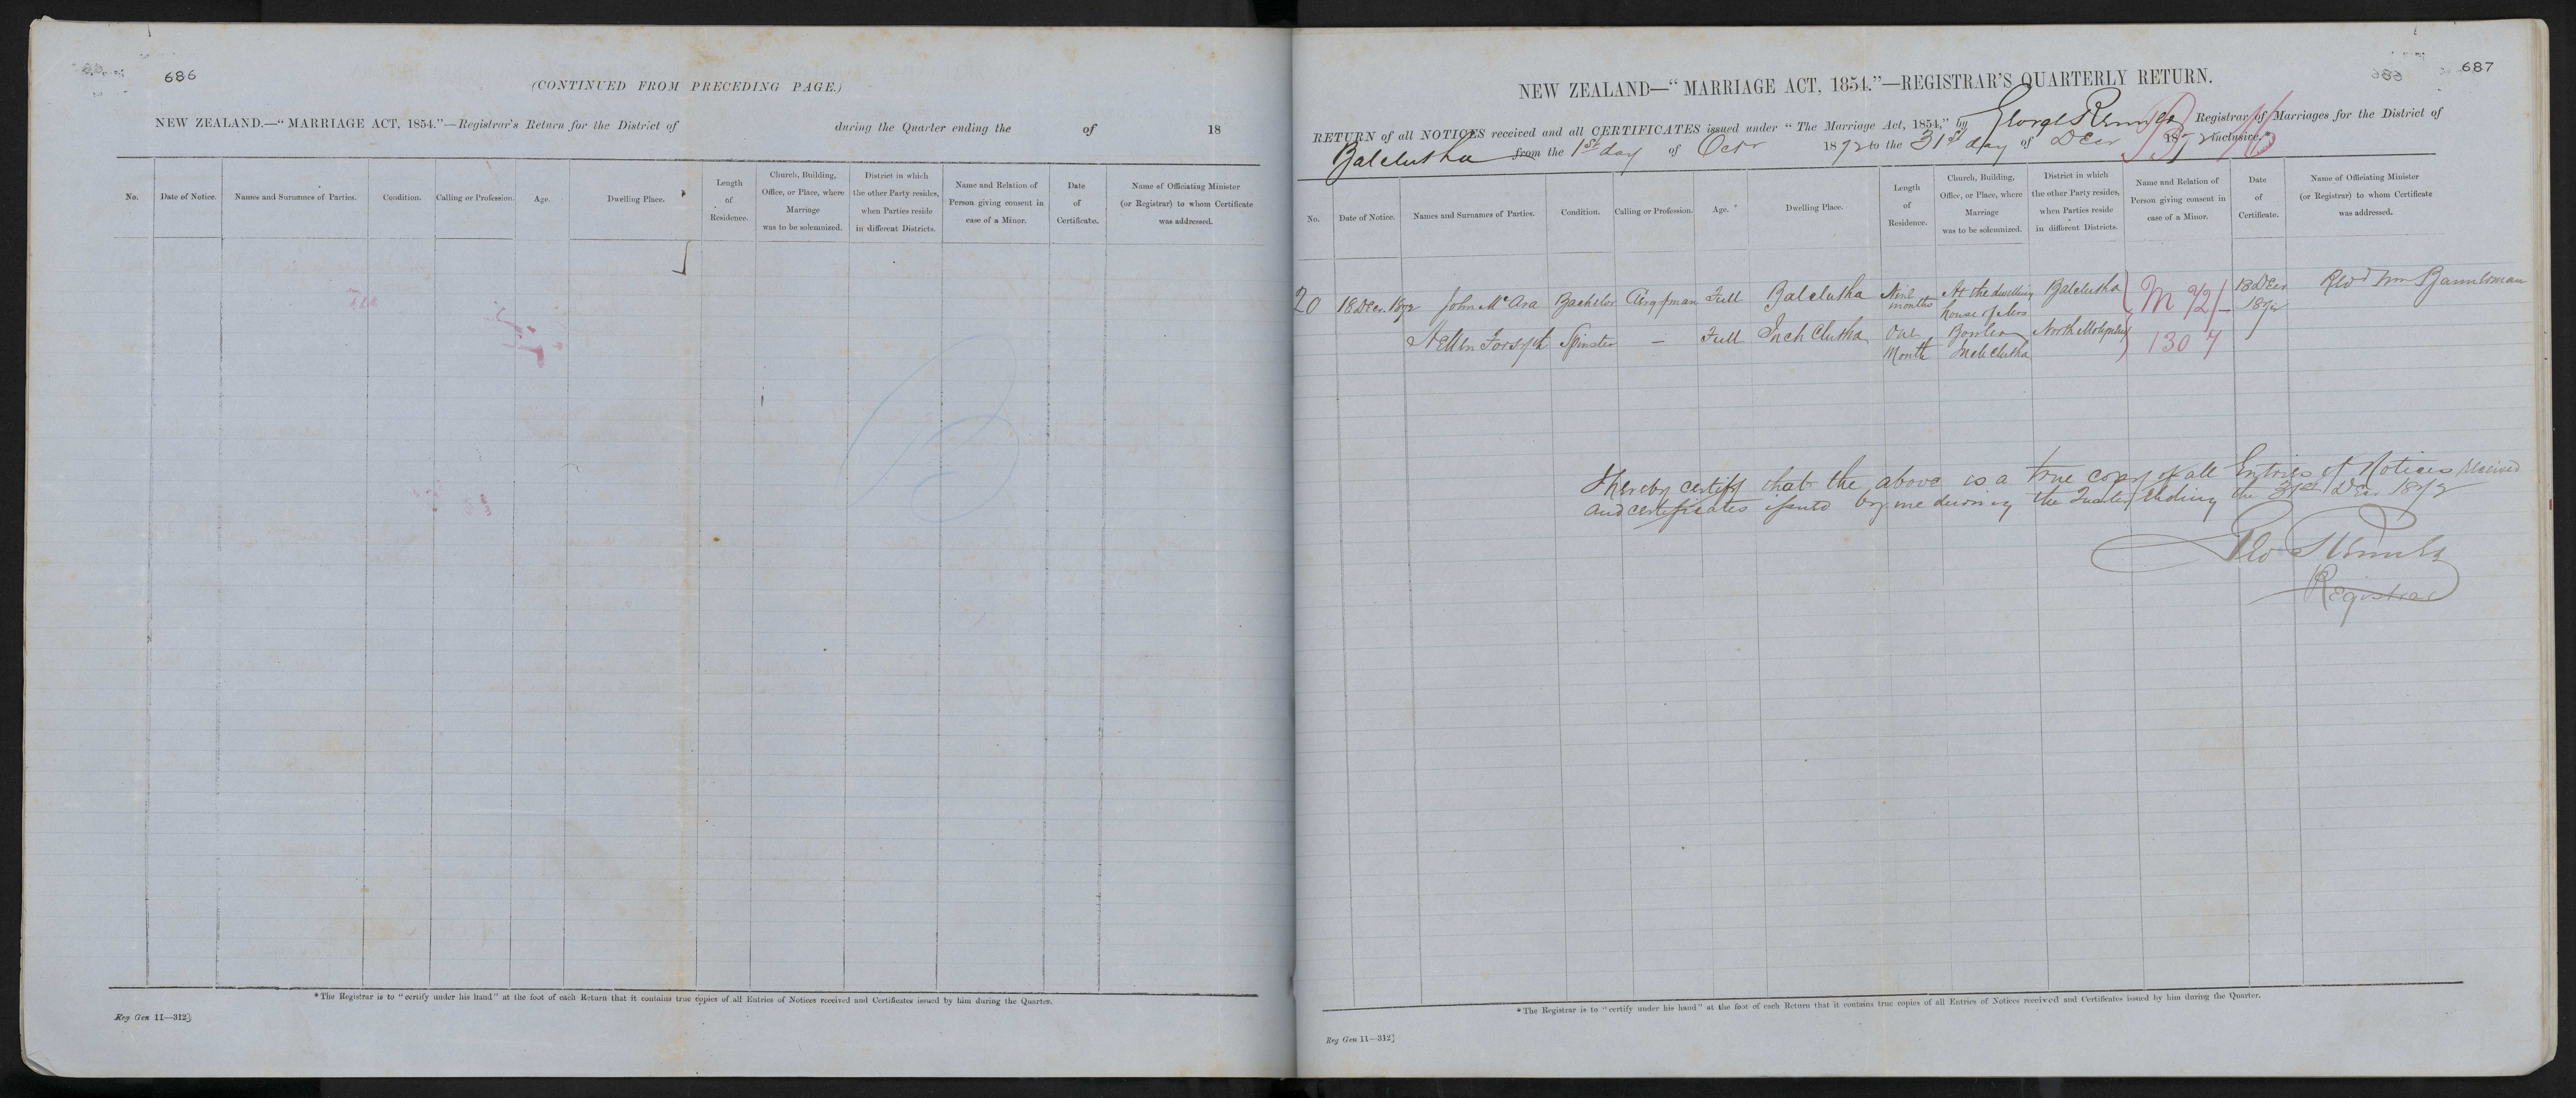 686
(CONTINUED FROM PRECEDING PAGE.)
NEW ZEALAND.—“MARRIAGE ACT, 1854.”—Registrar's Return for the District of during the Quarter ending the of 18
No. Date of Notice. Names and Surnames of Parties. Condition. Calling or Profession. Age. Dwelling Place. Length of Residence. Church, Building, Office, or Place, where Marriage was to be solemnized. District in which the other Party resides, when Parties reside in different Districts. Name and Relation of Person giving consent in case of a Minor. Date of Certificate. Name of Officiating Minister (or Registrar) to whom Certificate was addressed.
*The Registrar is to “certify under his hand” at the foot of each Return that it contains true copies of all Entries of Notices received and Certificates issued by him during the Quarter.
Reg Gen 11—312]
687
NEW ZEALAND—“MARRIAGE ACT, 1854.”—REGISTRAR'S QUARTERLY RETURN.
RETURN of all NOTICES received and all CERTIFICATES issued under “The Marriage Act, 1854,” by George Registrar of Marriages for the District of
Balclutha from the 1st day of Octr 1872 to the 31st day of Decr 1872 inclusive.*
No. Date of Notice. Names and Surnames of Parties. Condition. Calling or Profession. Age. Dwelling Place. Length of Residence. Church, Building, Office, or Place, where Marriage was to be solemnized. District in which the other Party resides, when Parties reside in different Districts. Name and Relation of Person giving consent in case of a Minor. Date of Certificate. Name of Officiating Minister (or Registrar) to whom Certificate was addressed.
20 18 Decr 1872 John McAra Bachelor Full Balclutha Nine months At the dwelling house of Mrs Balclutha M 72/ 18 Decr 1872 Revd Wm Bannerman
Ellen Forsyth Spinster — Full Inch Clutha One Month Inch Clutha North 1307
I hereby certify that the above is a true copy of all Entries of Notices received
and certificates issued by me during the Quarter Ending the 31st Decr 1872
Geo
Registrar
*The Registrar is to “certify under his hand” at the foot of each Return that it contains true copies of all Entries of Notices received and Certificates issued by him during the Quarter.
Reg Gen 11—312]